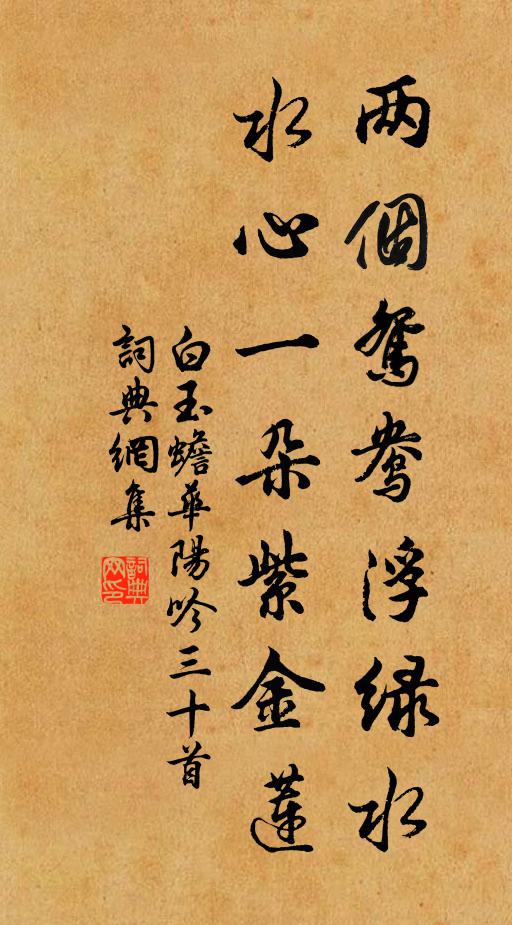 两個鴛鴦浮绿水
水心一朵紫金蓮
白玉蟾華陽吟三十首
詞典網集
詞典网印